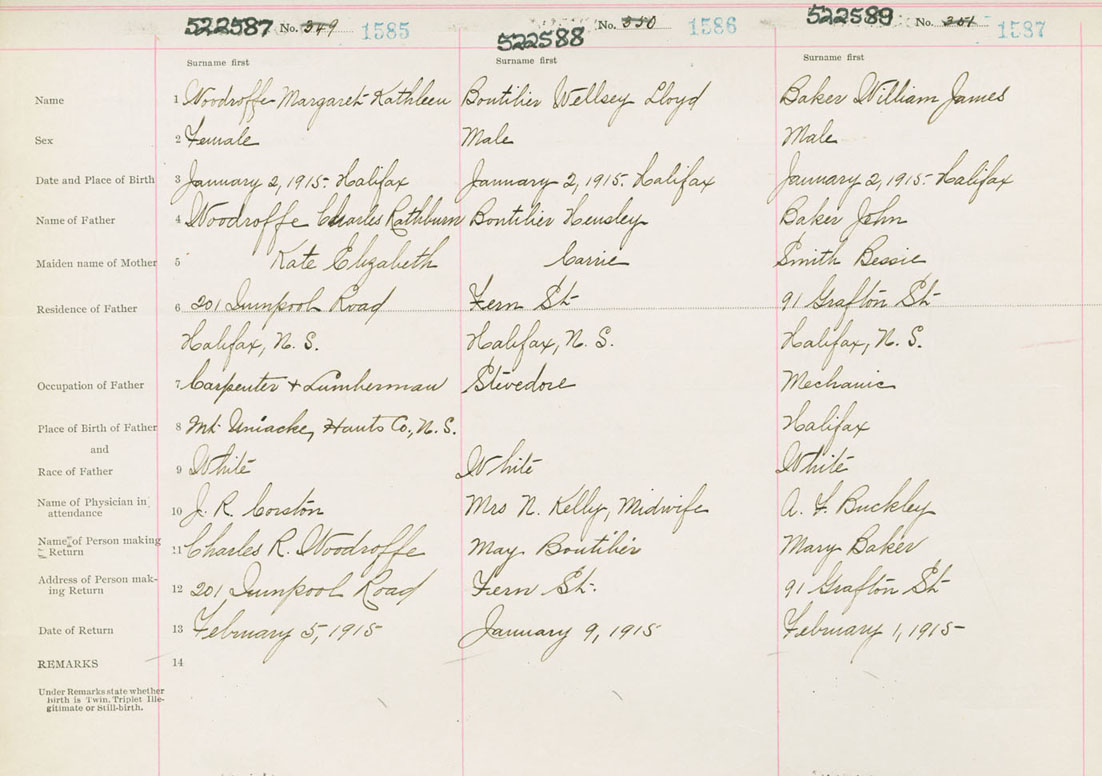 522587 No. 349 1585
522588 No. 350 1586
522589 No. 351 1587
Surname first Surname first Surname first
Name 1 Woodroffe Margaret Kathleen Boutilier Wellsey Lloyd Baker William James
Sex 2 Female Male Male
Date and Place of Birth 3 January 2, 1915. Halifax January 2, 1915. Halifax January 2, 1915. Halifax
Name of Father 4 Woodroffe Charles Rathburn Boutilier Hensley Baker John
Maiden name of Mother 5 Kate Elizabeth Carrie Smith Bessie
Residence of Father 6 201 Quinpool Road Fern St. 91 Grafton St.
Halifax, N. S. Halifax, N. S. Halifax, N. S.
Occupation of Father 7 Carpenter + Lumberman Stevedore Mechanic
Place of Birth of Father 8 Mt. Uniacke, Hants Co., N. S. Halifax
and
Race of Father 9 White White White
Name of Physician in
attendance 10 J. R. Corston Mrs N. Kelly, Midwife A. F. Buckley
Name of Person making
Return 11 Charles R. Woodroffe May Boutilier Mary Baker
Address of Person mak-
ing Return 12 201 Quinpool Road Fern St. 91 Grafton St.
Date of Return 13 February 5, 1915 January 9, 1915 February 1, 1915
REMARKS 14
Under Remarks state whether
birth is Twin, Triplet Ille-
gitimate or Still-birth.